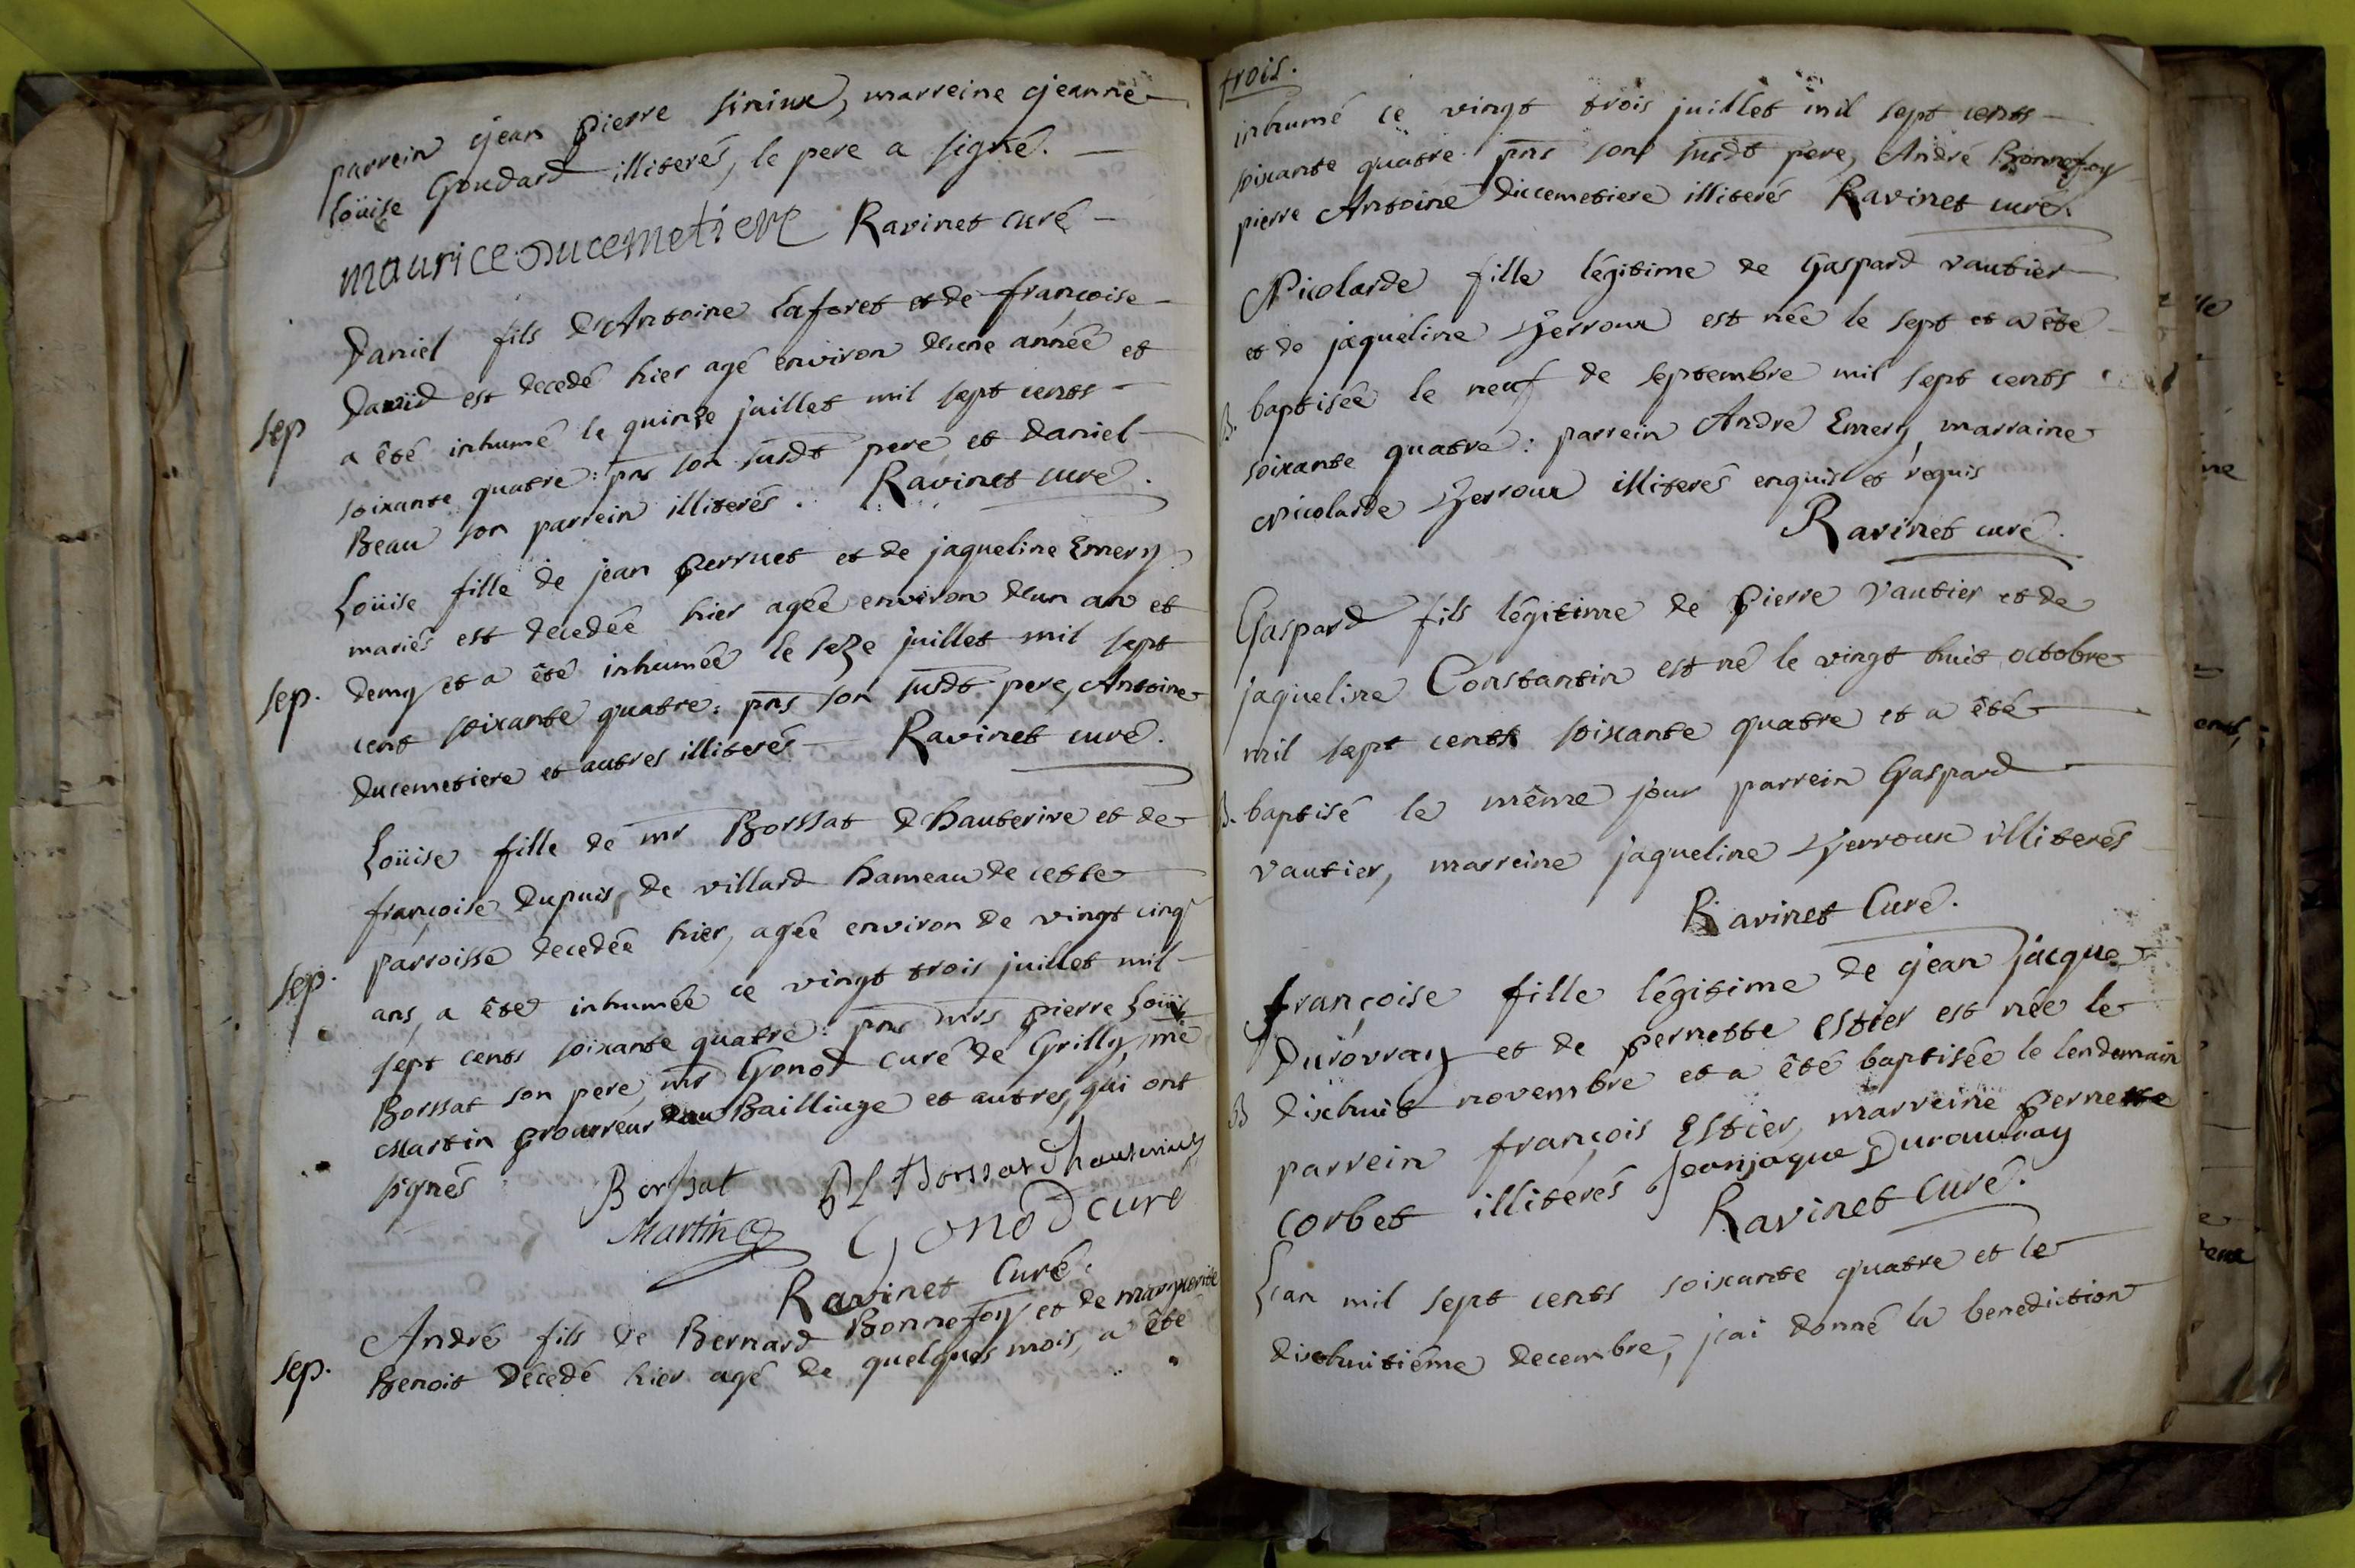 parrein jean pierre sinïux, marreine jeanne
Loüise Goudard illiterés, le pere a signé.
maurice Ducemetiere Ravinet curé
Daniel fils d'Antoine Laforet et de françoise
David est decedé hier agé environ d'une année et
sep a été inhumé le quinze juillet mil sept cents
soixante quatre: pns son susdt pere et daniel
Beau son parrein illiterés. Ravinet curé.
Loüise fille de jean perruet et de jaqueline Emery
mariés est decedée hier agée environ d'un an et
sep. demy et a été inhumée le seze juillet mil sept
cent soixante quatre: pns son susdt pere, Antoine
ducemetiere et autres illiterés Ravinet curé.
Loüise fille de mr Borssat d'hauterive et de
françoise Dupuis, de villard hameau de cette
parroisse decedée hier, agée environ de vingt cinq
sep. ans, a été inhumée ce vingt trois juillet mil
sept cents soixante quatre: pns mrs pierre Loüis
Borssat son pere, mr Gonod curé de Grilly, me
Martin procurreur au Bailliage et autres, qui ont
signés Borssat PL Borssat Dhauterive
Martin Gonod curé
Ravinet Curé.
André fils de Bernard Bonnefoy et de marguerite
sep. Benoit décedé hier agé de quelques mois, a été
trois.
inhumé ce vingt trois juillet mil sept cents
soixante quatre pns son susdt pere, André Bonnefoy
pierre Antoine Ducemetiere illiterés Ravinet curé.
Nicolarde fille légitime de Gaspard vautier
et de jaqueline Verroux est née le sept et a été
B. baptisée le neuf de septembre mil sept cents
soixante quatre: parrein André Emery, marraine
Nicolarde Verroux illiterés enquis et requis
Ravinet curé.
Gaspard fils légitime de Pierre Vautier et de
jaqueline Constantin est né le vingt huit octobre
mil sept cents soixante quatre et a été
B. baptisé le même jour parrein Gaspard
Vautier, marreine jaqueline Verroux illiterés
Ravinet Curé.
françoise fille légitime de jean jacque
Durovray et de pernette Estier est née le
B dixhuit novembre et a été baptisée le lendemain
parrein françois Estier, marreine pernette
corbet illiterés Jeanjaque Durouvray
Ravinet Curé.
L'an mil sept cents soixante quatre et le
dixhuitiéme decembre, j'ai donné la benediction